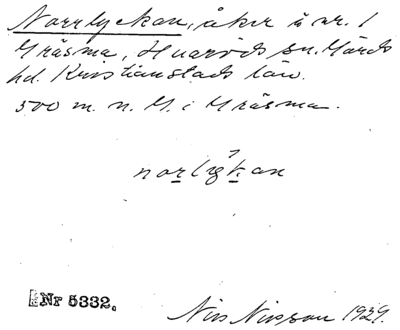 Norrlyckan, åker å nr. 1
Gräsma, Huaröds sn. Gärds
hd. Kristianstads län.
500 m. n. G. i Gräsma.
norlykan
Nr 5332.
Nils Nilsson 1929.